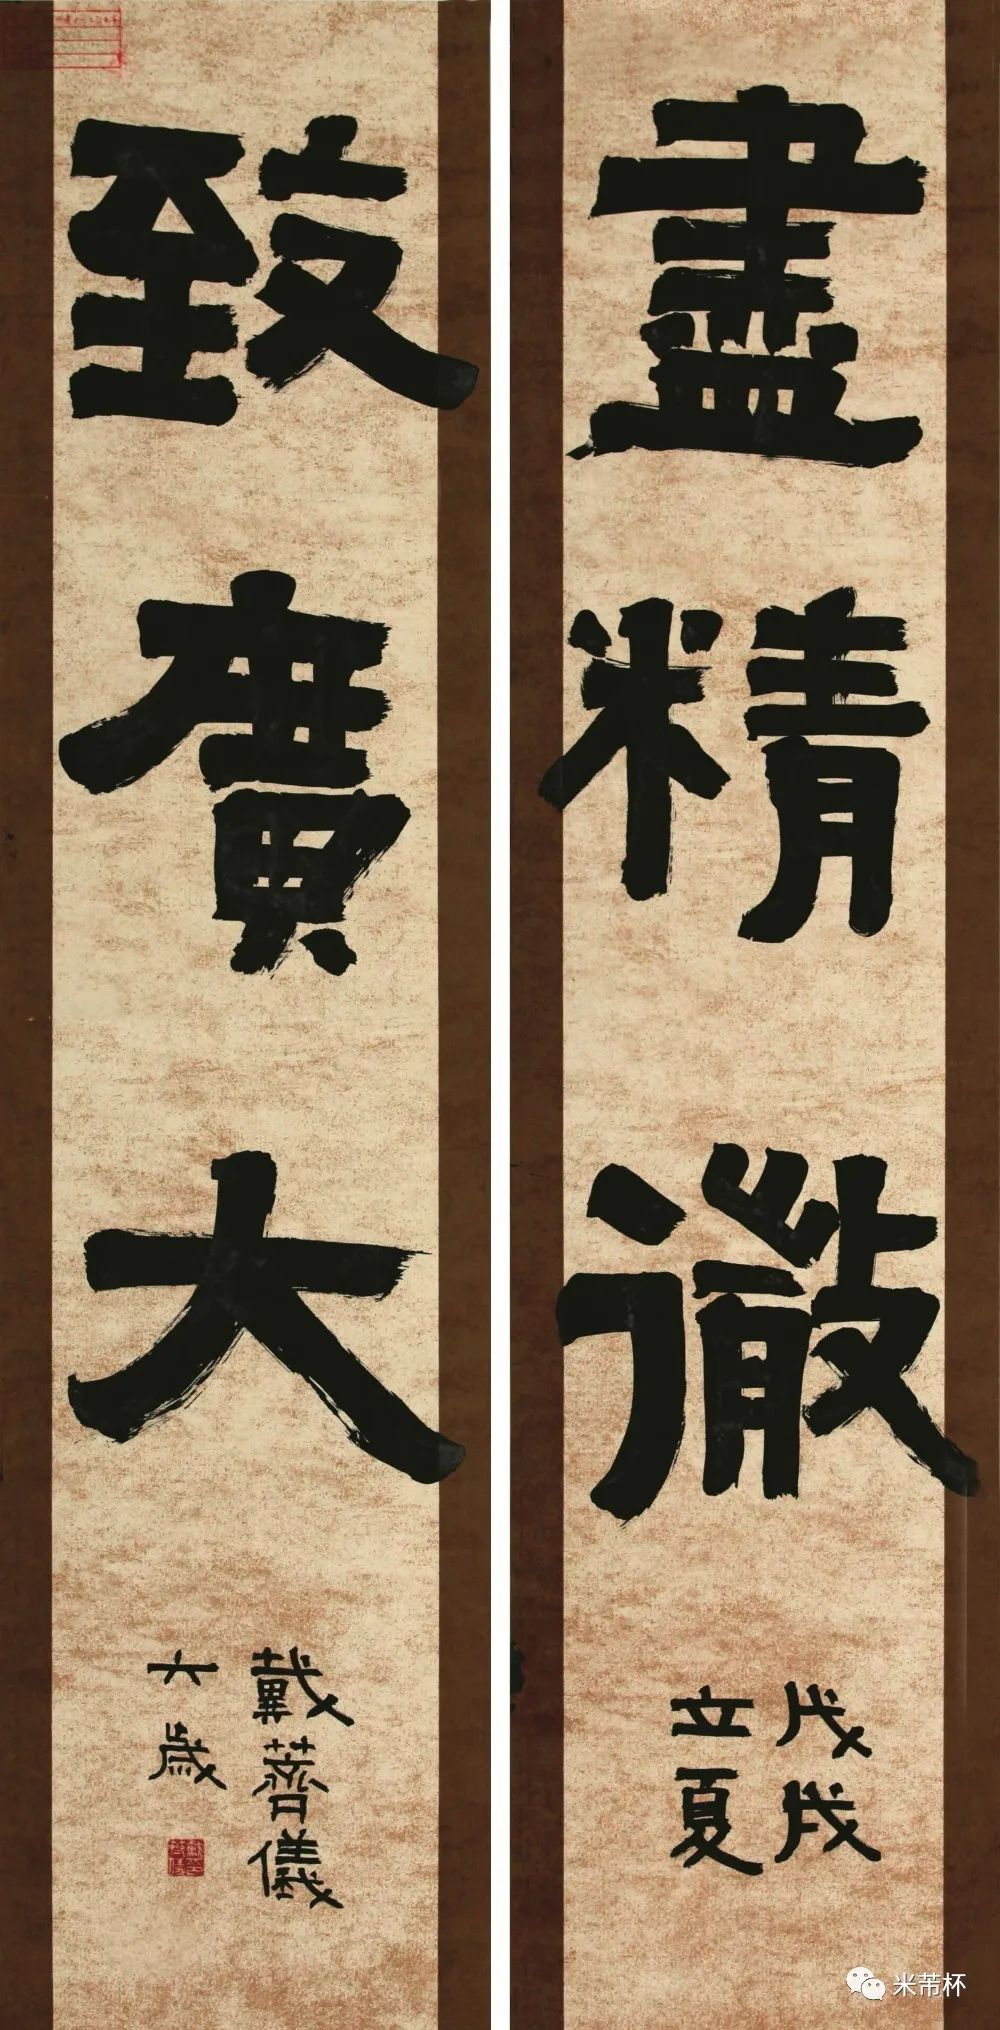 盡精微
戊戌
立夏
致廣大
戴薺儀
六歲
米芾杯